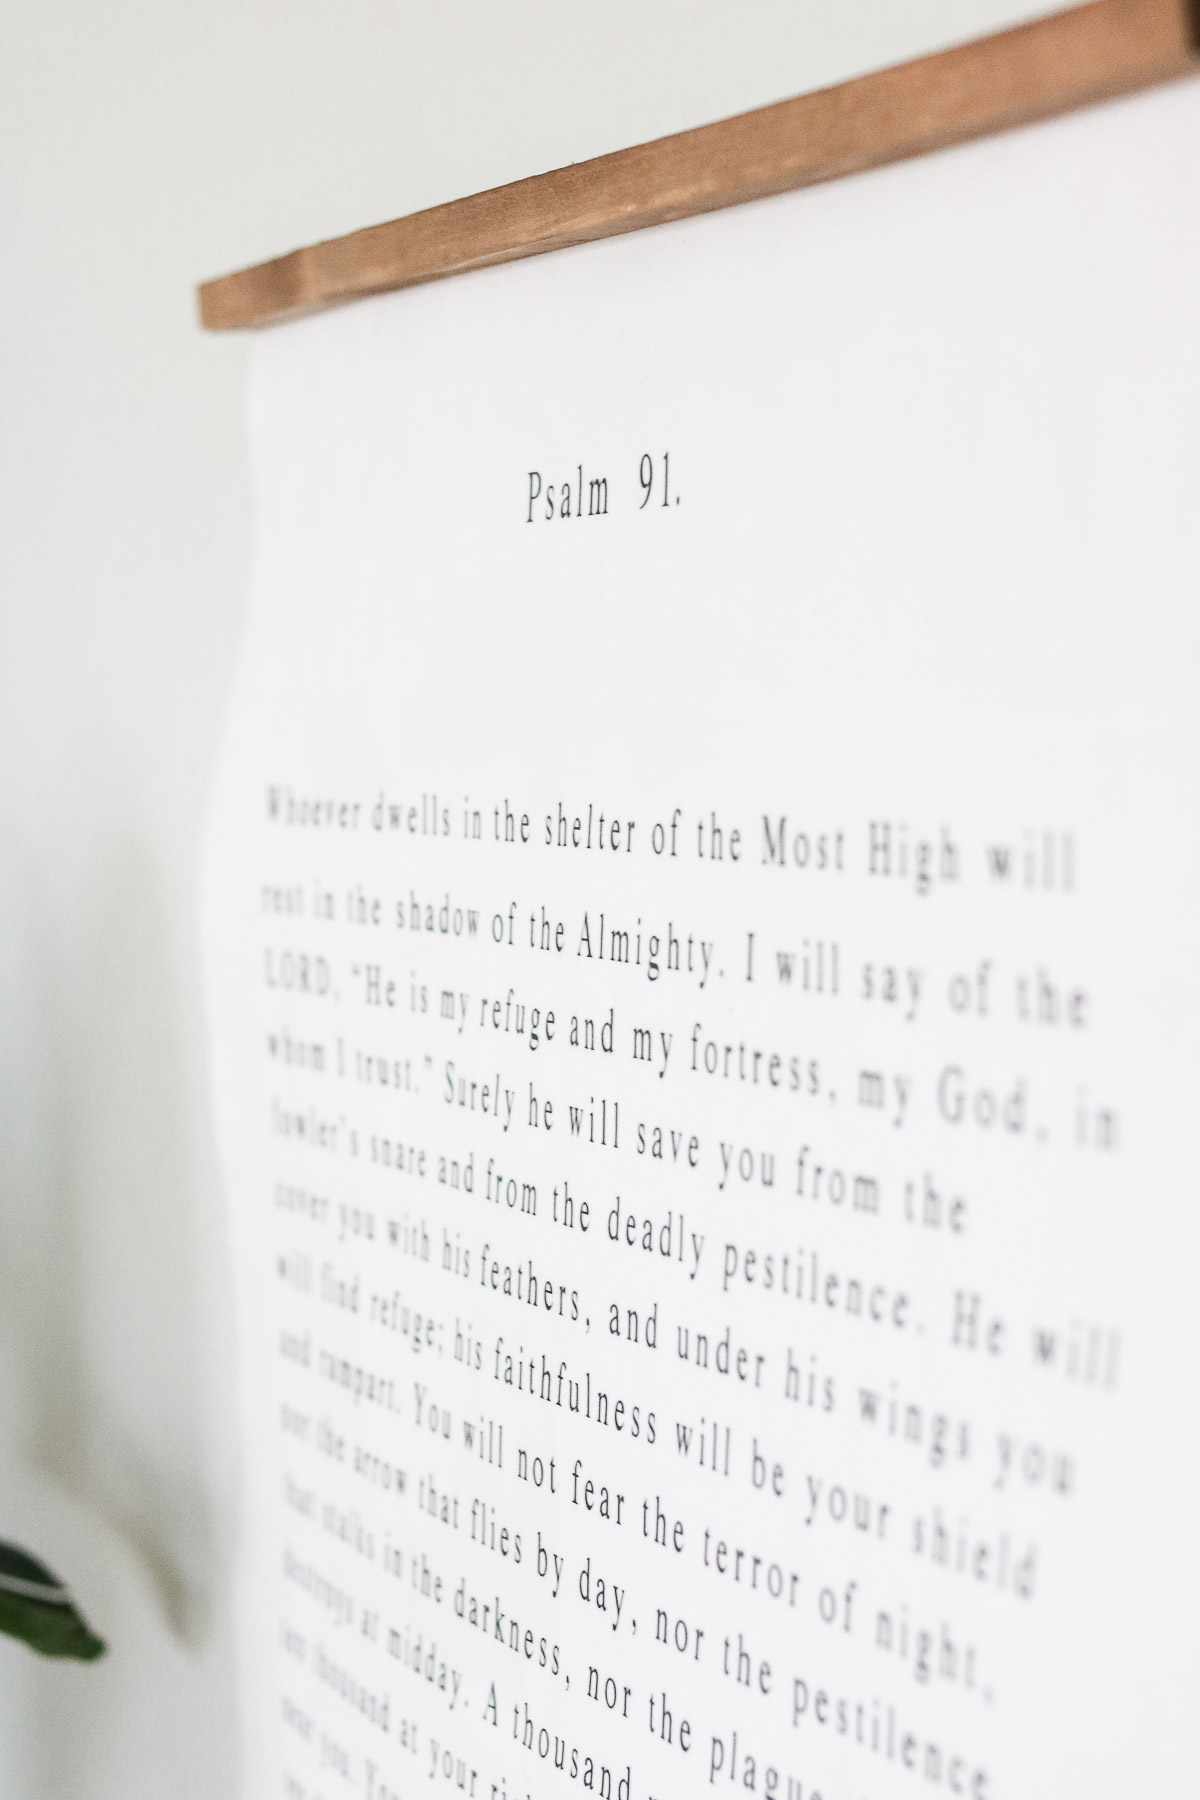 Psalm 91.
Whoever dwells in the shelter of the Most High will
rest in the shadow of the Almighty. I will say of the
LORD, “He is my refuge and my fortress, my God, in
whom I trust.” Surely he will save you from the
fowler's snare and from the deadly pestilence. He will
cover you with his feathers, and under his wings you
will find refuge; his faithfulness will be your shield
and rampart. You will not fear the terror of night,
nor the arrow that flies by day, nor the pestilence
that stalks in the darkness, nor the plague
destroys at midday. A thousand
ten thousand at your
near you. You